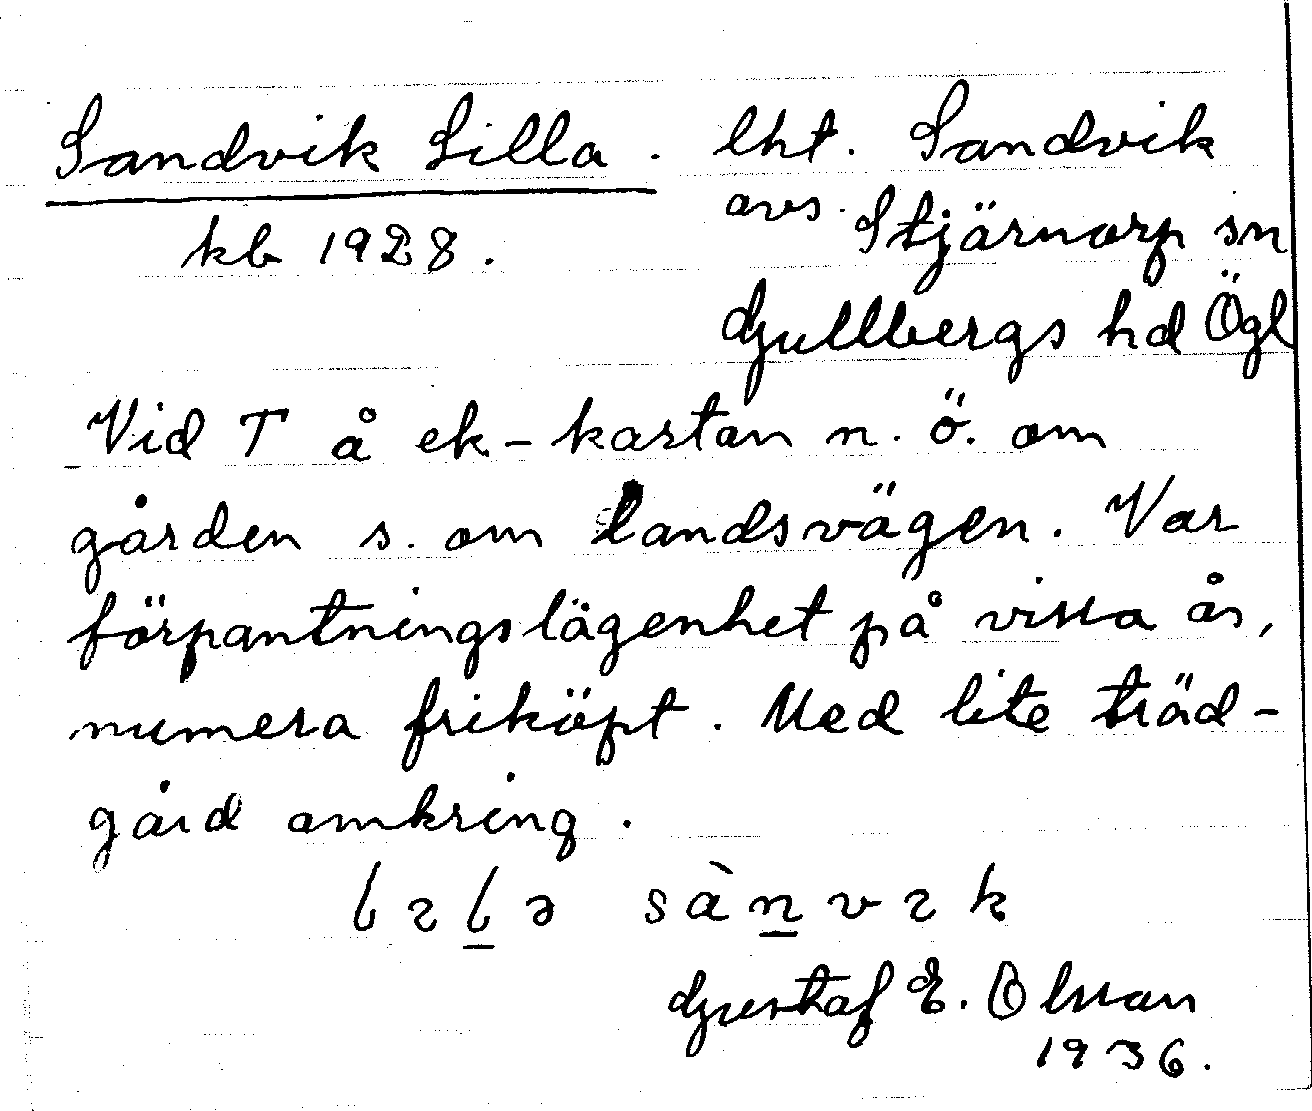 Sandvik Lilla. lht. Sandvik
kb 1928. avs. Stjärnorp sn
Gullbergs hd Ögl
Vid T å ek-kartan n.ö. om
gården s. om landsvägen. Var
förpantningslägenhet på vissa år,
numera friköpt. Med lite träd-
gård omkring.
sànvɿk
Gustaf E. Olsson
1936.